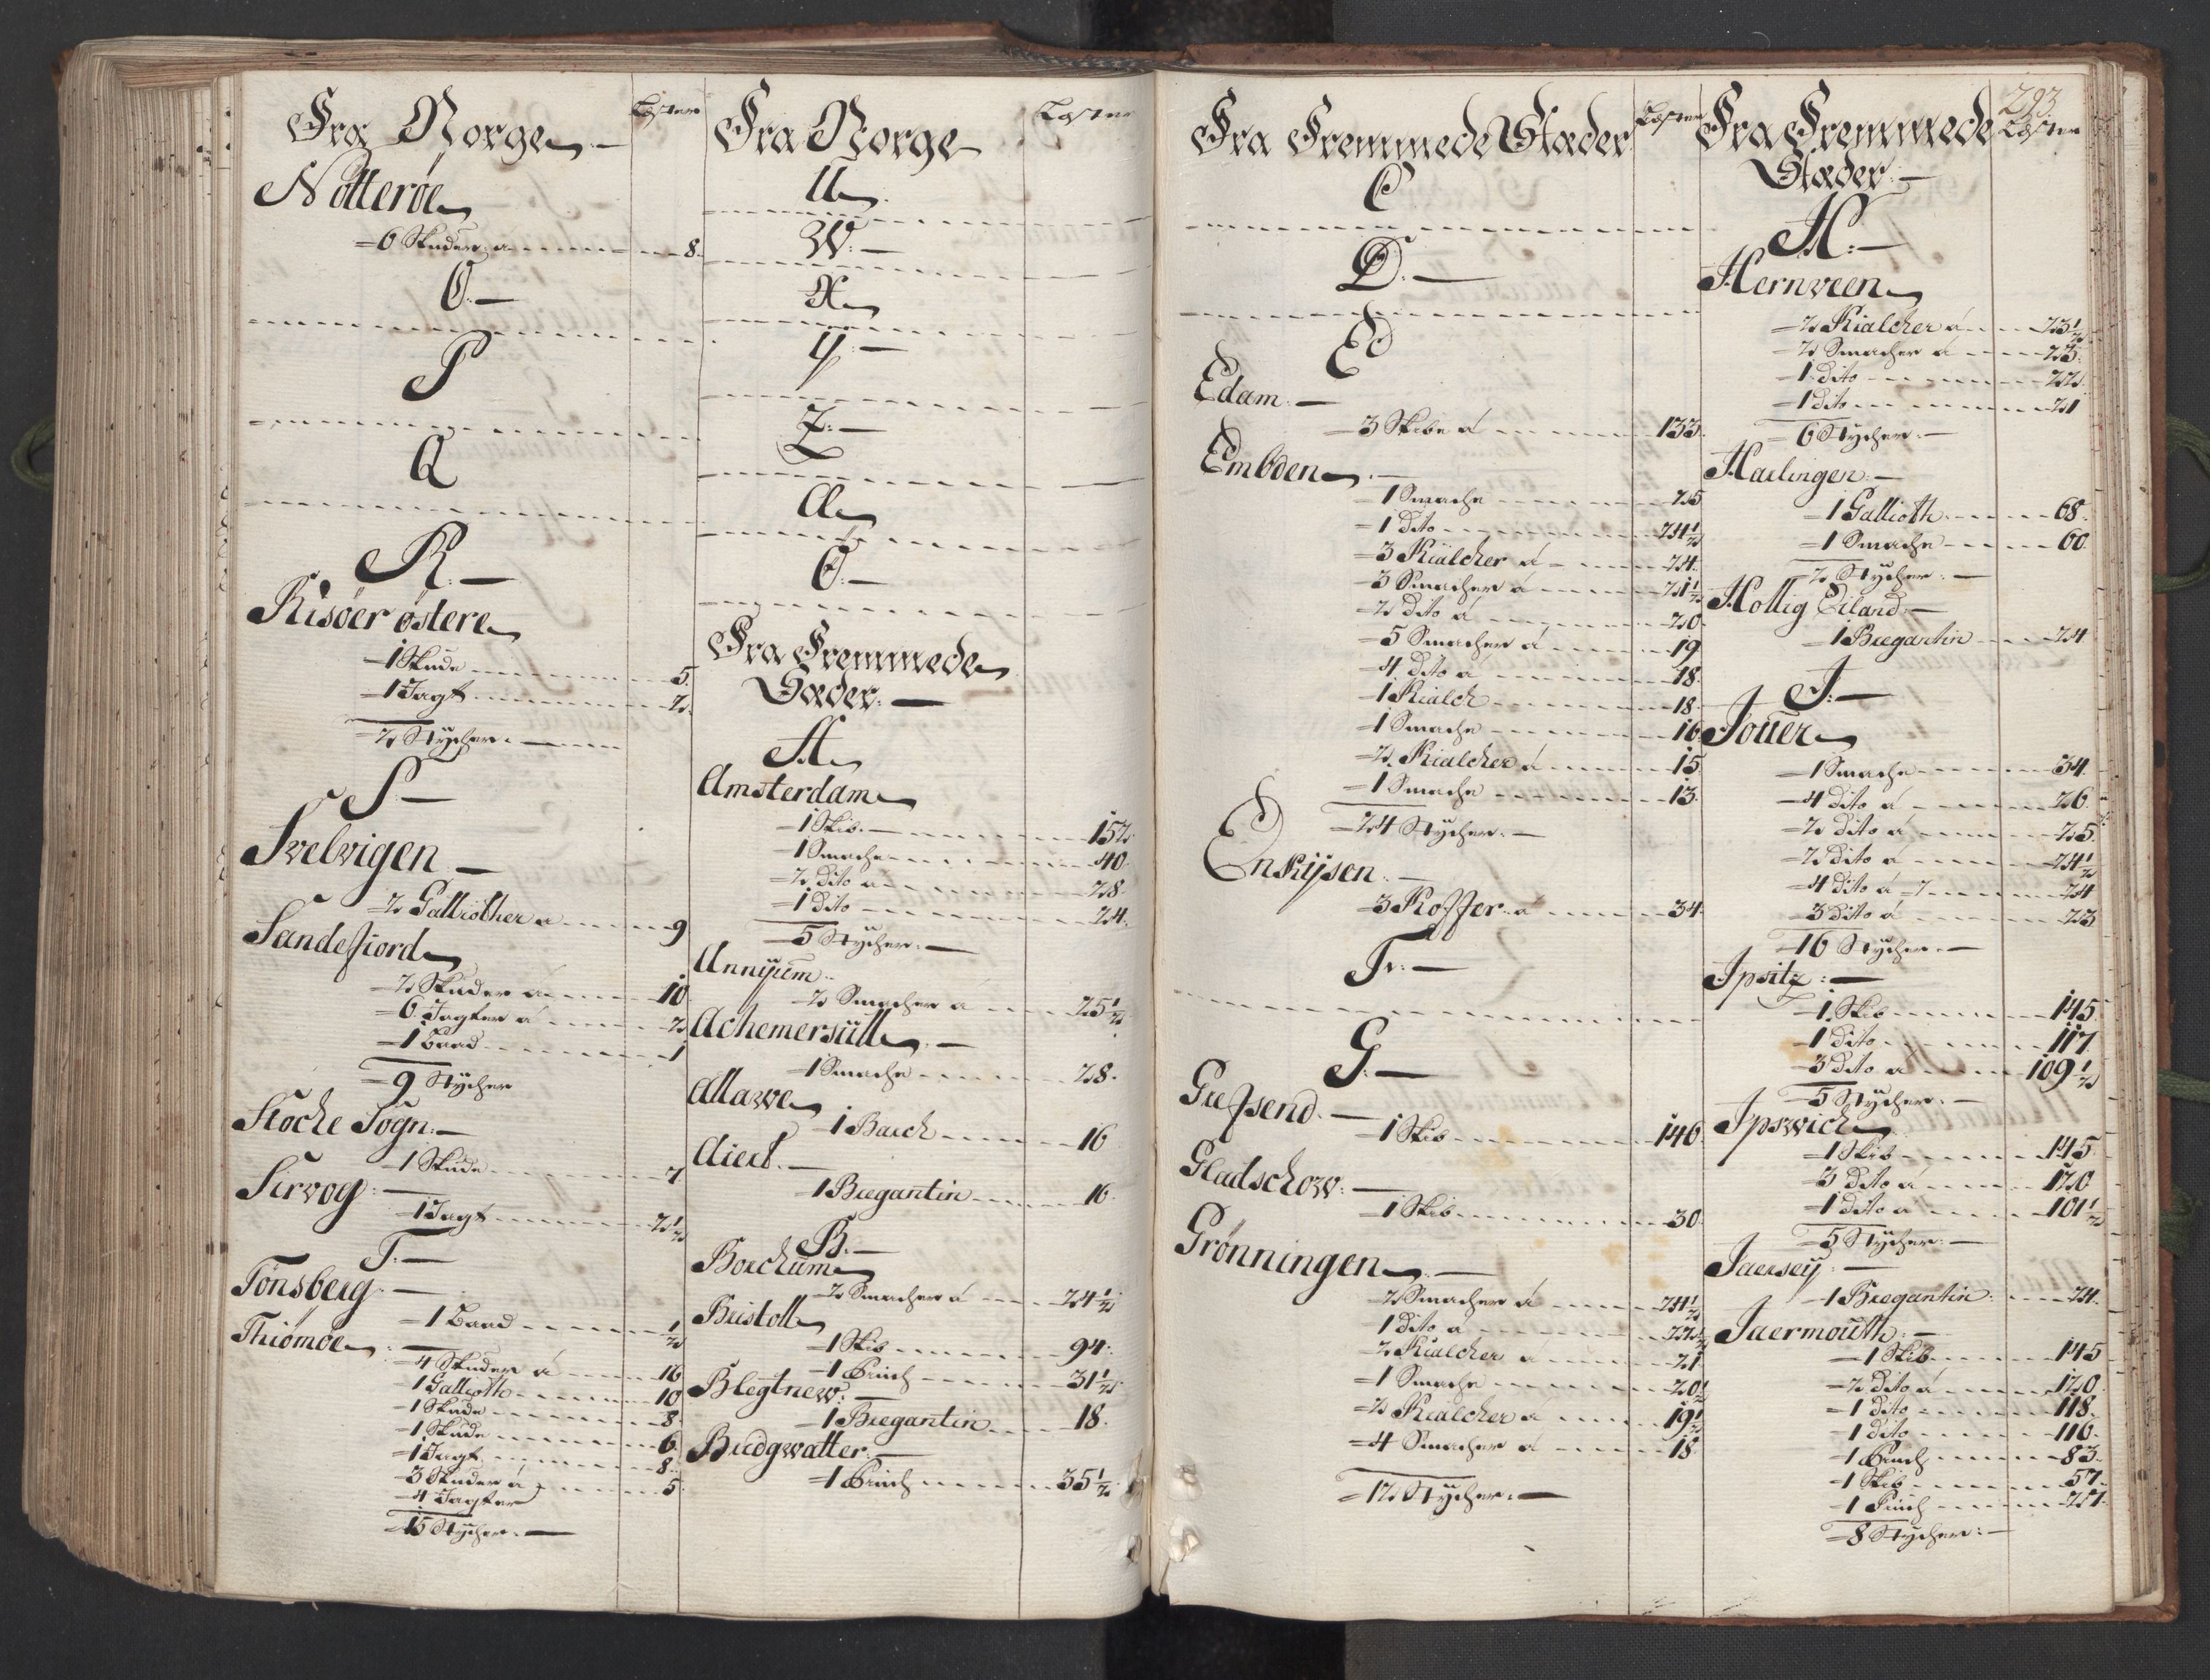 Fra Norge
Læster
Nøtterøe
6 Skuder a 8.
O.
P
Q
R.
Risøer østere
1 Skude 5.
1 Jagt 2.
2 Stycher.
S.
Svelvigen
2 Galliother a 9
Sandefiord
2 Skuder a 10
6 Jagter a 2
1 Baad 1
9 Stycher
Stoche Sogn.
1 Skude 7
Sirvog:
1 Jagt 2½
T.
Tønsberg.
1 Baad ½
Thiømøe
4 Skuder á 16
1 Galliotte 10
1 Skude 8.
1 Skude 6.
1 Jagt 8.
3 Skuder á 5
4 Jagter
15 Stycher.
Fra Norge
Læster
U
W.
X
Y.
Z.
Æ
Ö.
Fra Fremmede
Stæder.
A
Amsterdam
1 Skib. 152
1 Smache 40
2 dito a 28.
1 dito 24.
5 Stycher.
Annijum.
2 Smacher a 25½
Achemersüll
1 Smache 28.
Allawe
1 Barch 16
Aiert.
1 Bregantin 16.
B.
Borchum
2 Smacher á 24½
Bristoll
1 Skib 94.
1 Brich 31½
Blegtnew:
1 Bregantin 18.
Bridgwatter.
1 Brich 35½
Fra Fremmede Stæder
Læster
C
D.
E
Edam.
3 Skibe á 133.
Embden
1 Smache 25
1 dito 24½
3 Kiälcher á 24.
3 Smacher á 21½
2 dito á 20
5 Smacher á 19
4 dito á 18.
1 Kialch 18.
1 Smache 16
2 Kialcher á 15
1 Smache 13.
24 Stycher.
Enkijsen.
3 Koffer a 34.
F.
G.
Grefsend.
1 Skib 146
Gladschow.
1 Skib 30
Grønningen
2 Smacher á 24½
1 dito a 22½
2 Kialcher á 21
1 Smache 20½
2 Kialcher á 19½
4 Smacher á 18.
12 Stycher.
293
Fra Fremmede
Læster
Stæder.
H.
Hernveen
2 Kialcher á 23½
2 Smacher á 23.
1 dito 22
1 dito 21
6 Stycher.
Harlingen.
1 Gallioth 68.
1 Smache 60.
2 Stycher.
Hollig Eiland.
1 Bregantin 24
J.
Jouer
1 Smache 34.
4 dito á 26.
2 dito á 25.
2 dito á 24½
4 dito á 24
3 dito á 23
16 Stycher.
Jpsitz:
1 Skib 145
1 dito 117
3 dito a 109½
5 Stycher.
Jpswich
1 Skib 145.
3 dito á 120
1 dito a 101½
5 Stycher.
Jaersey.
1 Bregantin 24.
Jaermouth:
1 Skib 145
2 dito á 120
1 dito 118.
1 dito 116.
1 Brich 83.
1 Skib 57.
1 Brich 27.
8 Stycher: